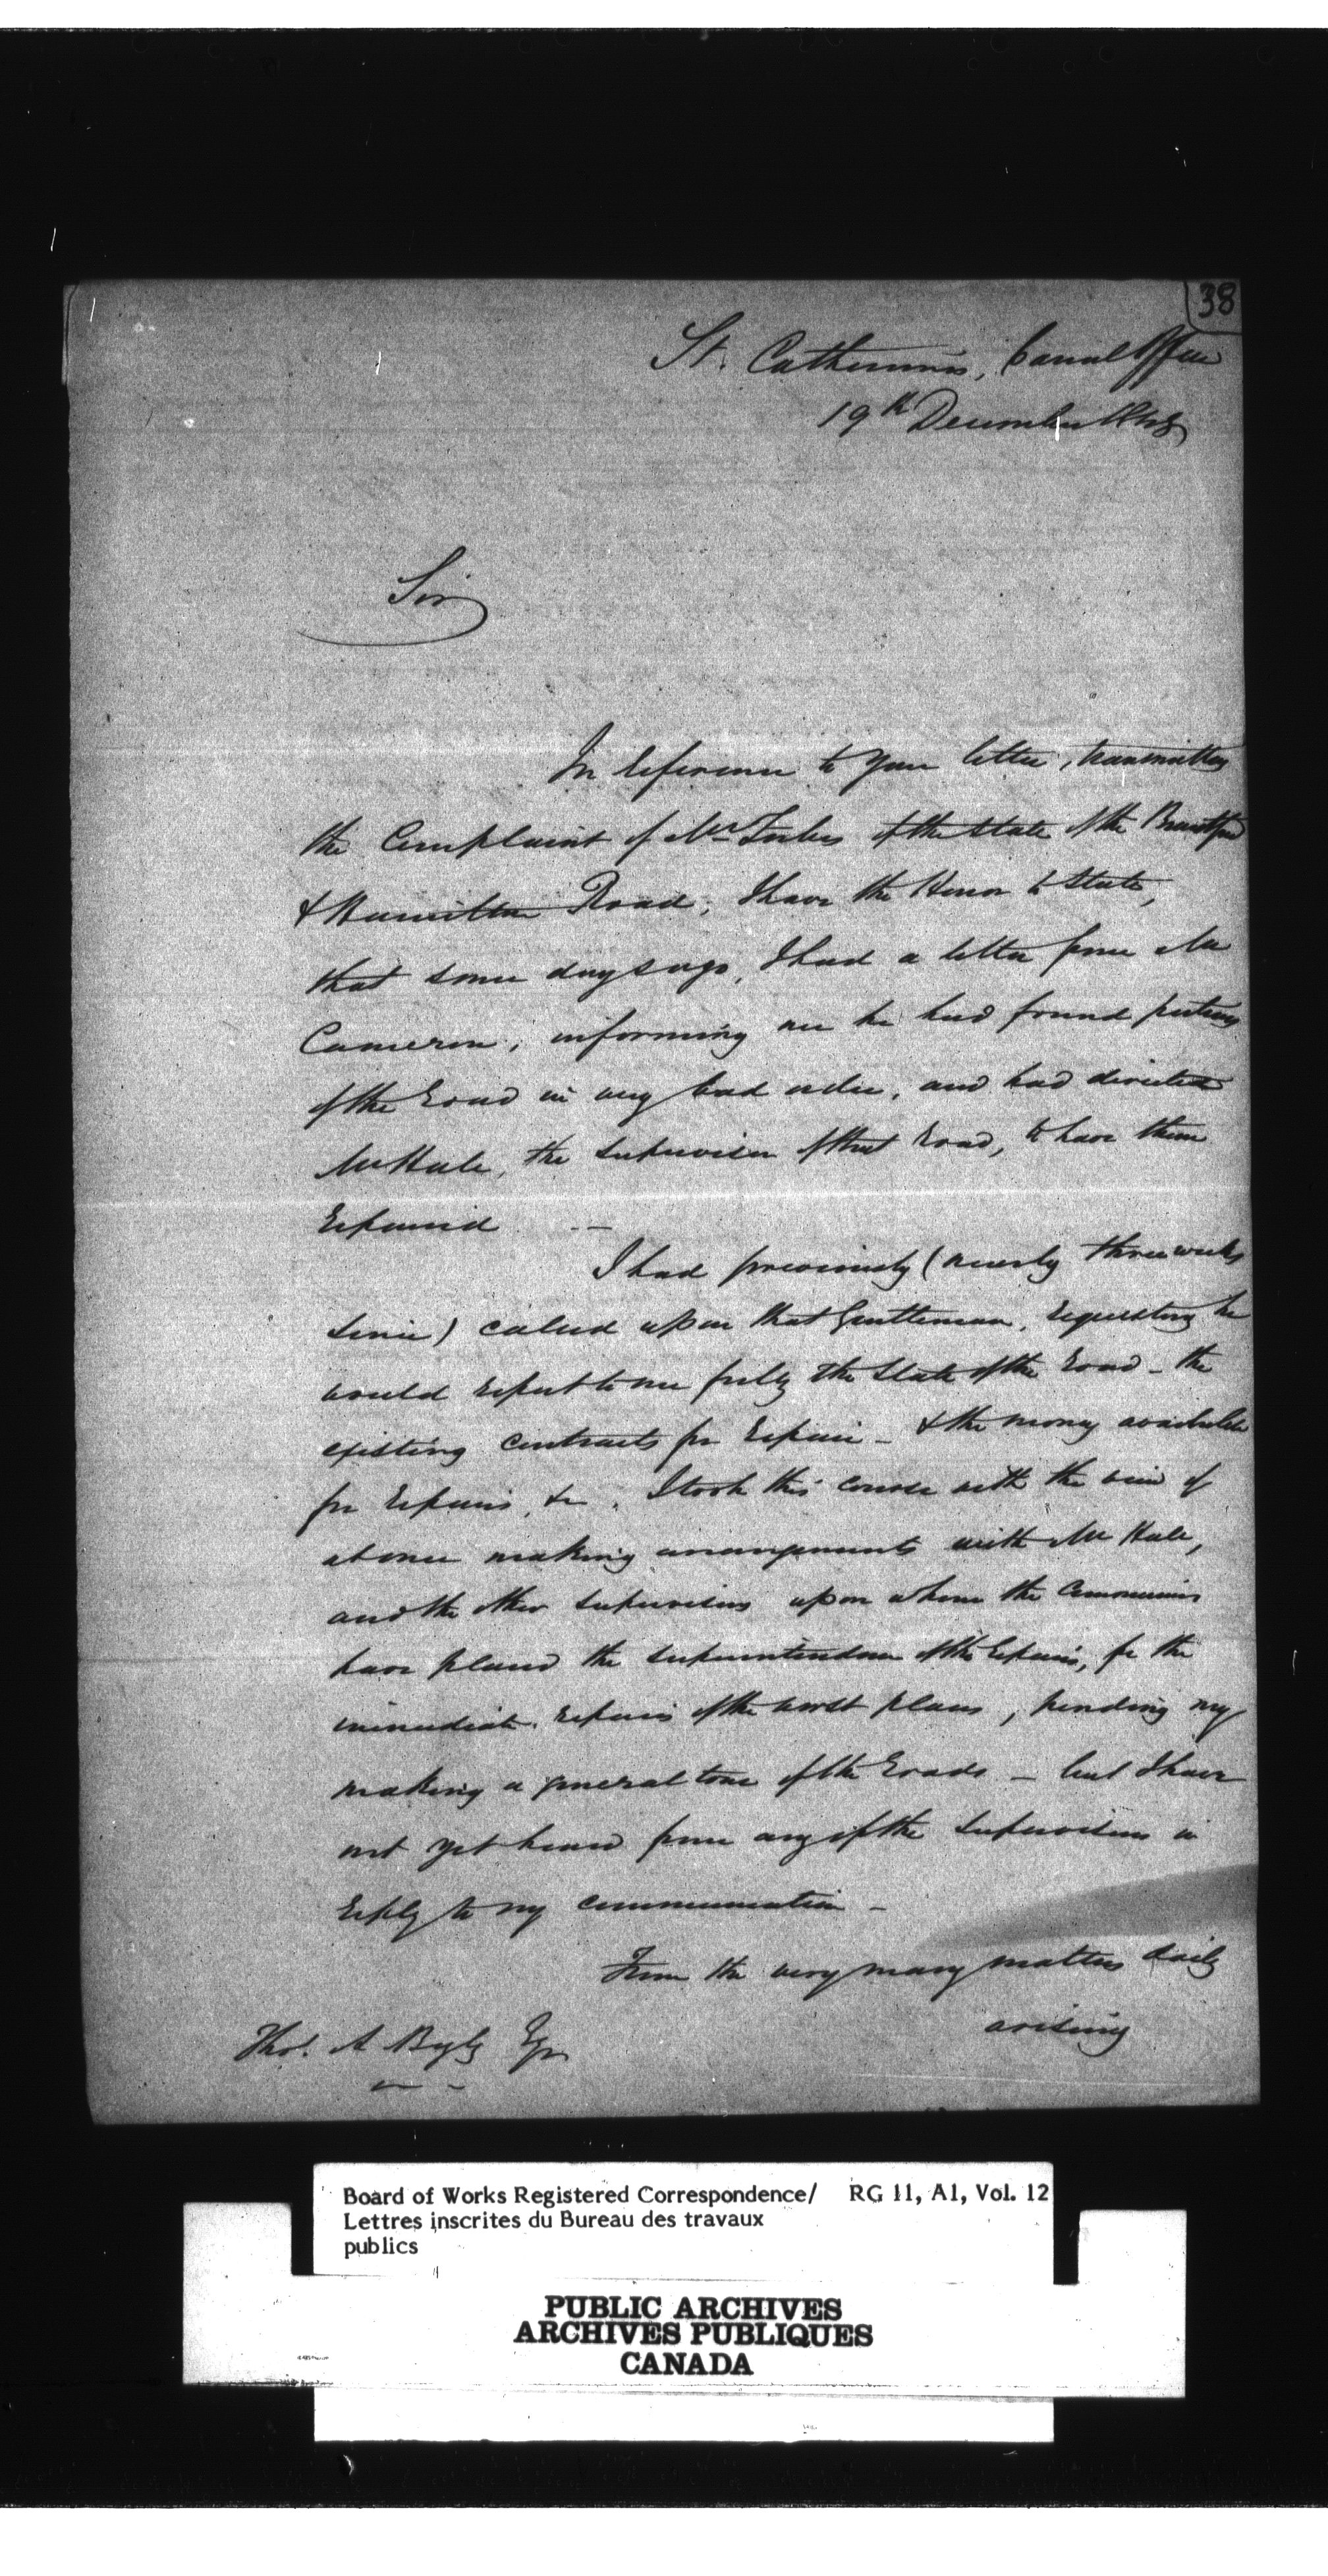 38
St. Catherines, Canal Office
19th December 1848
Sir
In reference to your letter, transmitting
the Complaint of Mr Forbes of the State of the Brantford
& Hamilton Road, I have the Honor to State,
that some days ago, I had a letter from Mr
Cameron, informing me he had found portions
of the Road in very bad order, and had directed
Mr Hale, the Supervisor of that Road, to have them
Repaired —
I had previously (nearly three weeks
since) called upon that Gentleman, requesting he
would report to me fully the State of the Road - the
existing contracts for Repair - & the money available
for Repairs, &c. I took this course with the view of
at once making arrangements with Mr Hale,
and the other Supervisors upon whom the
have placed the Superintendence of the Repairs, for the
immediate repairs of the worst places, pending my
making a general tour of the Roads - but I have
not yet heard from any of the Supervisors in
reply to my communication -
From the very many matters daily
arising
Thos. A Begly Esqr
Board of Works Registered Correspondence/ RG 11, A1, Vol. 12
Lettres inscrites du Bureau des travaux
publics
PUBLIC ARCHIVES
ARCHIVES PUBLIQUES
CANADA